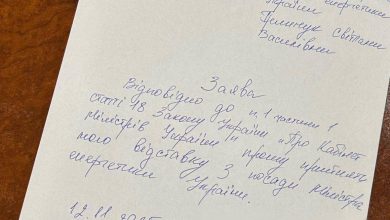 України енергетики
Гринчук Світлани
Василівни
Заява
Відповідно до п. 1 частини 1
статті 18 Закону України "Про Кабінет
Міністрів України" прошу прийняти
мою відставку з посади міністра
енергетики України.
12.11.2025